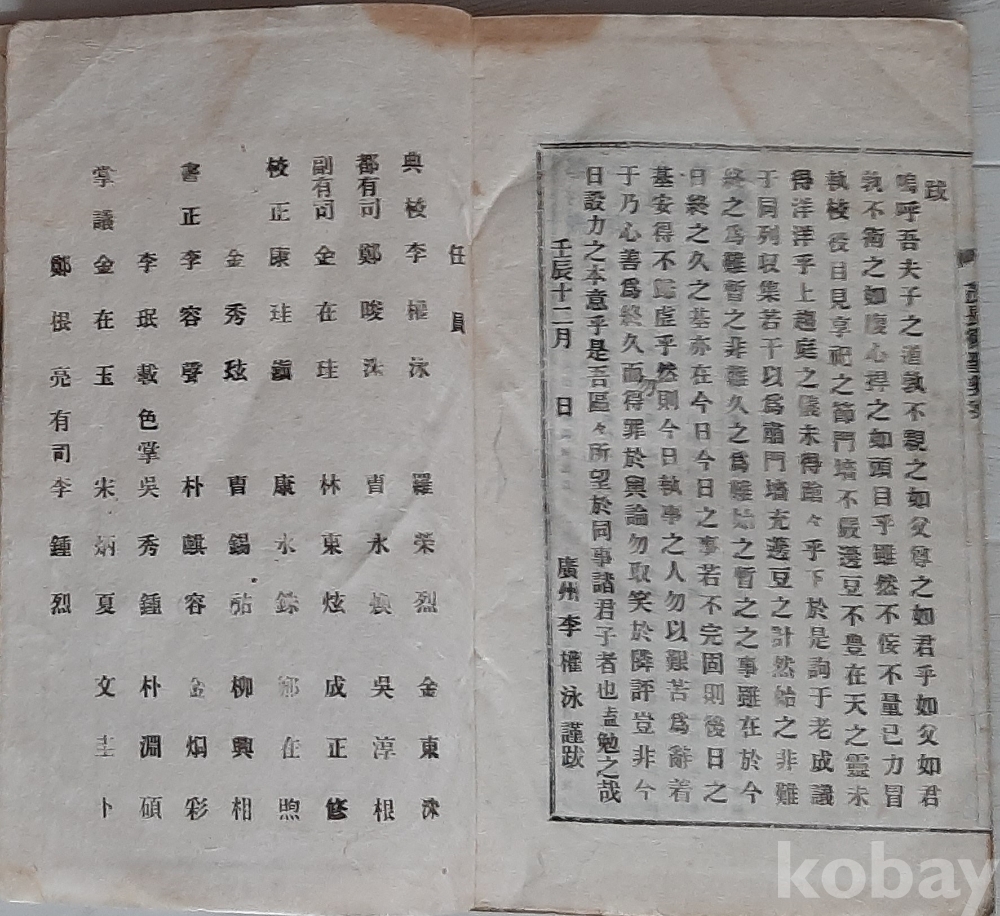 跋
嗚呼吾夫子之道孰不親之如父尊之如君乎如父如君
孰不衛之如腹心捍之如頭目乎雖然不侫不量已力冒
執校役日見享祀之節門墻不嚴籩豆不豊在天之靈未
得洋洋乎上趨庭之儀未得蹌々乎下於是詢于老成議
于同列収集若干以為肅門墻充籩豆之計然始之非難
終之為難暫之非難久之為難始之暫之之事雖在於今
日終之久之基亦在今日今日之事若不完固則後日之
基安得不歸虛乎然則今日執事之人勿以艱苦為辭着
于乃心善為終久而得罪於輿論勿取笑於隣評豈非今
日設力之本意乎是吾區々所望於同事諸君子者也盍勉之哉
勿
壬辰十二月 日 廣州李權泳謹跋
任員
典校 李權泳 羅榮烈 金東洙
都有司 鄭晙洙 曺永煥 吳淳根
副有司 金在珪 林東炫 成正修
校正 康珪 康永銖 鄭在煦
金秀玹 曺錫 柳興相
書正 李容聲 朴麒容 金炯彩
李珉載 色掌 吳秀鍾 朴淵碩
掌議 金在玉 宋炳夏 文圭卜
鄭根亮 有司 李鍾烈
kobay